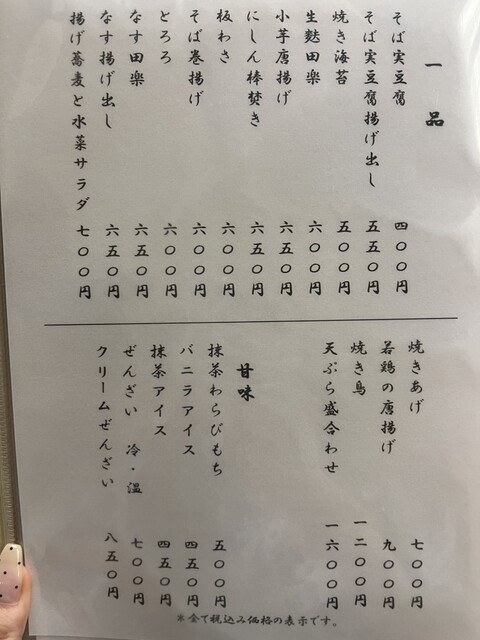 一品
そば実豆腐 四〇〇円
そば実豆腐揚げ出し 五五〇円
焼き海苔 五〇〇円
生麩田楽 六〇〇円
小芋唐揚げ 六五〇円
にしん棒焚き 六五〇円
板わさ 六〇〇円
そば巻揚げ 六〇〇円
とろろ 六〇〇円
なす田楽 六五〇円
なす揚げ出し 六五〇円
揚げ蕎麦と水菜サラダ 七〇〇円
焼きあげ 七〇〇円
若鶏の唐揚げ 九〇〇円
焼き鳥 一二〇〇円
天ぷら盛合わせ 一六〇〇円
甘味
抹茶わらびもち 五〇〇円
バニラアイス 四五〇円
抹茶アイス 四五〇円
ぜんざい 冷・温 七〇〇円
クリームぜんざい 八五〇円
※全て税込み価格の表示です。